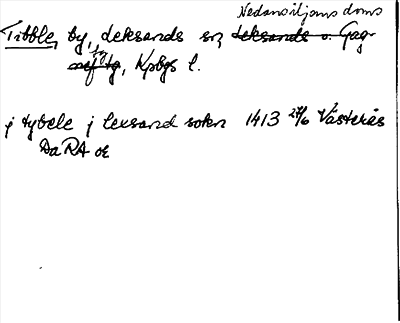 Nedansiljans doms
Tibble, by, Leksands sn, Leksands o. Gag-
nef tg, Kpbgs l.
j tybele j lexsand sokn 1413 27/6 Västerås
DaRA or